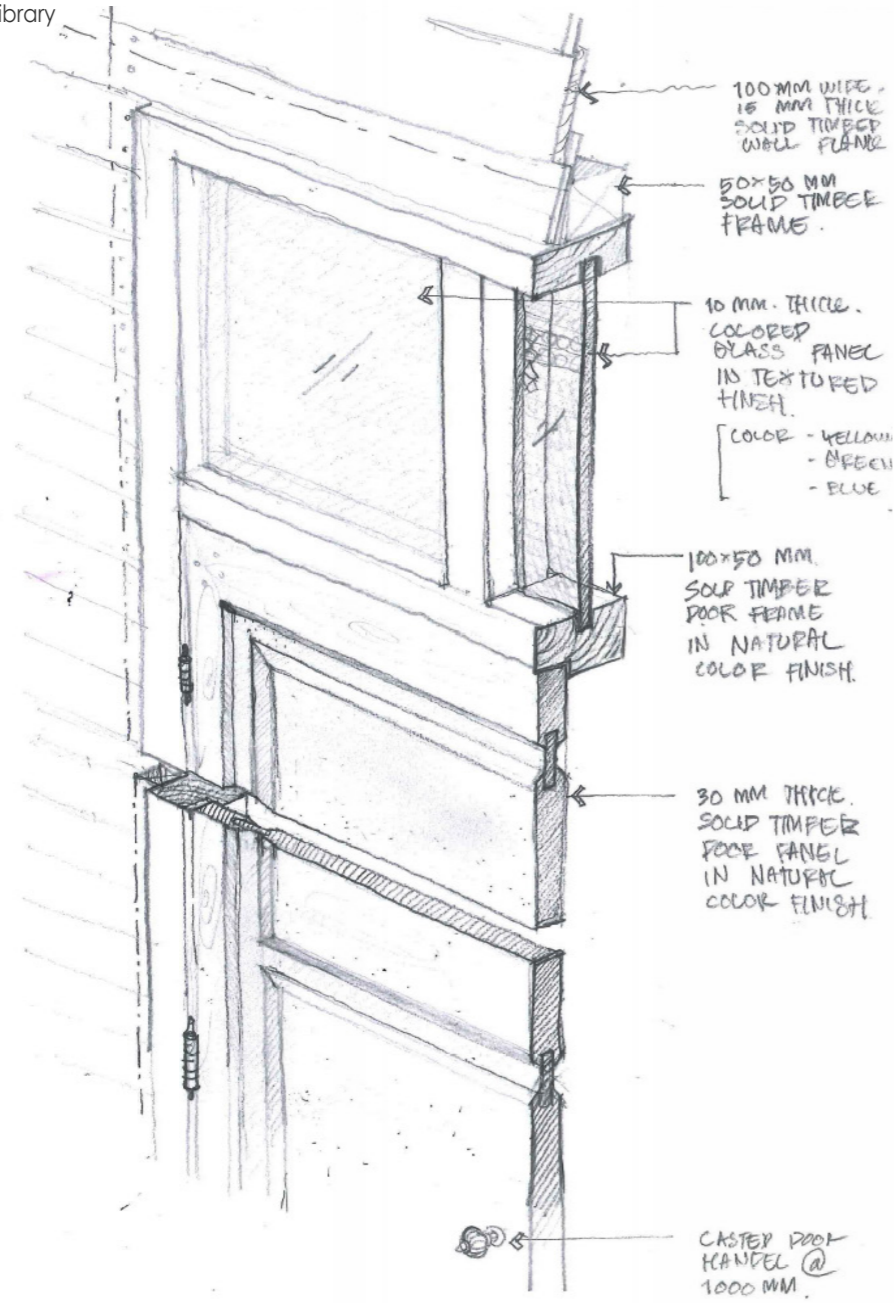 ibrary
100 MM WIDE.
15 MM THICK
SOLID TIMBER
WALL PLANK
50×50 MM
SOLID TIMBER
FRAME.
10 MM. THICK.
COLORED
GLASS PANEL
IN TEXTURED
FINISH.
COLOR - YELLOW
- GREEN
- BLUE
100×50 MM.
SOLID TIMBER
DOOR FRAME
IN NATURAL
COLOR FINISH.
30 MM THICK.
SOLID TIMBER
DOOR PANEL
IN NATURAL
COLOR FINISH
CASTED DOOR
HANDEL @
1000 MM.